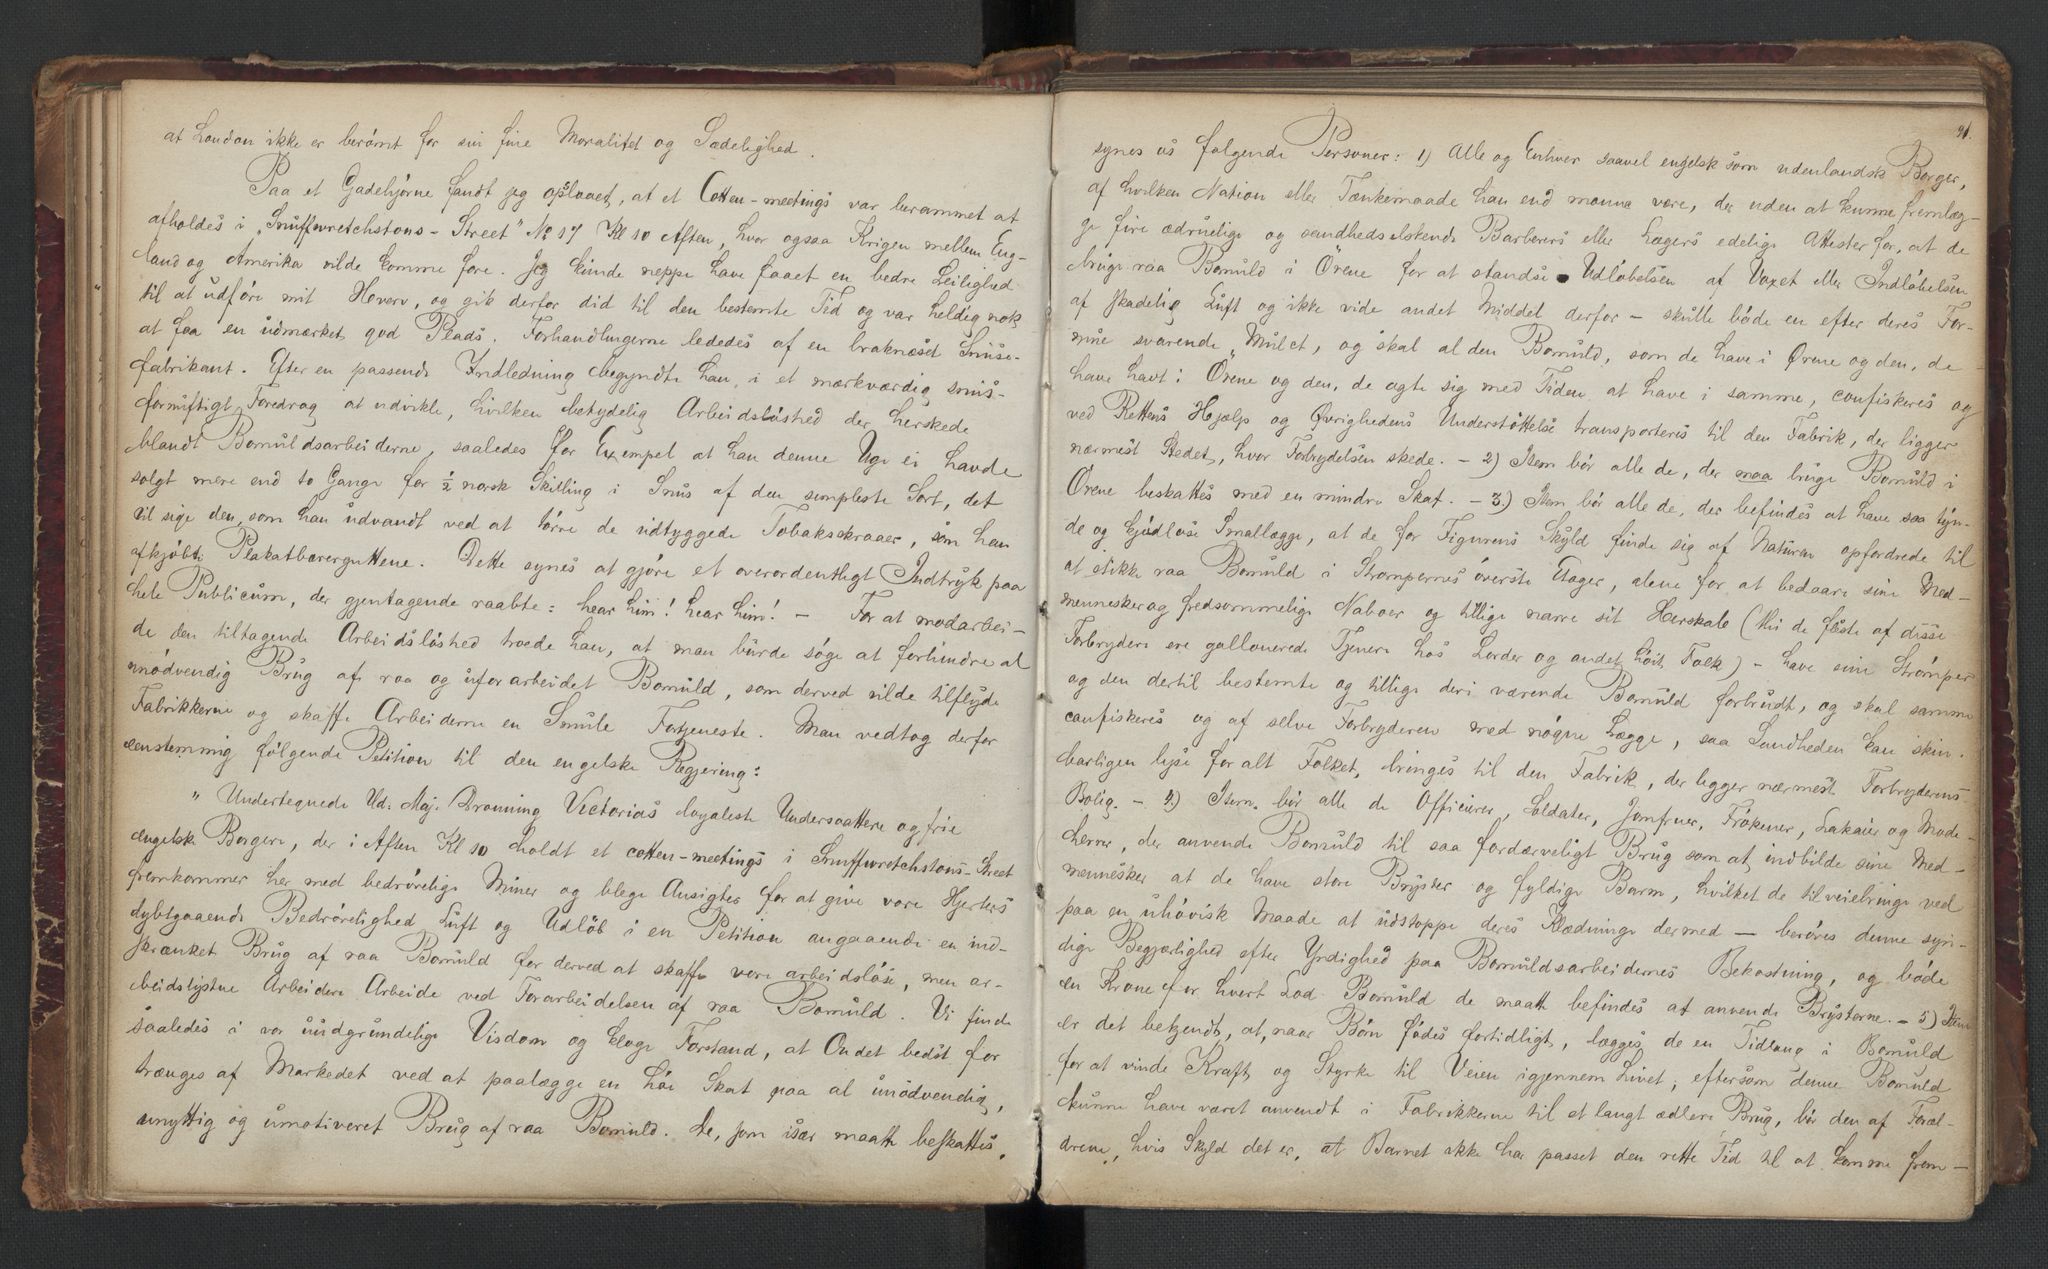 at London ikke er berömt for sin fine Moralitet og Sædelighed.
Paa et Gadehjörne fandt jeg opslaaet, at et Cotten-meetings var berammet at
afholdes i „Snuffwretchstons-Street” No 17 Kl 10 Aften, hvor ogsaa Krigen mellem Eng-
land og Amerika vilde komme fore. Jeg kunde neppe have faaet en bedre Leilighed
til at udföre mit Hverv, og gik derfor did til den bestemte Tid og var heldig nok
at faa en udmærket god Plads. Forhandlingerne lededes af en braknæset Snuse-
fabrikant. Efter en passende Indledning begyndte han i et mærkværdig snus-
fornuftigt Foredrag at udvikle, hvilken betydelig Arbeidslöshed der herskede
blandt Bomuldsarbeiderne, saaledes for Exempel at han denne Uge ei havde
solgt mere end to Gange for ½ norsk Skilling i Snus af den simpleste Sort, det
vil sige den, som han udvandt ved at törre de udtyggede Tobaksskraaer, som han
afkjöbte Plakatbærerguttene. Dette synes at gjöre et overordentligt Indtryk paa
hele Publicum, der gjentagende raabte: hear him! hear him! — For at modarbei-
de den tiltagende Arbeidslöshed troede han, at man burde söge at forhindre al
unödvendig Brug af raa og uforarbeidet Bomuld, som derved vilde tilflyde
Fabrikkerne og skaffe Arbeiderne en Smule Fortjeneste. Man vedtog derfor
eenstemmig fölgende Petition til den engelske Regjering:
„Undertegnede Hd. Maj. Dronning Victorias loyaleste Undersaattere og frie
engelske Borgere, der i Aften Kl 10 holdt et cotten-meetings i Snuffwretchstons-Street
fremkommer her med bedrövelige Miner og blege Ansigter for at give vore Hjerters
dybtgaaende Bedrövelighed Luft og Udlöb i en Petition angaaende en ind-
skrænket Brug af raa Bomuld for derved at skaffe vore arbeidslöse, men ar-
beidslystne Arbeidere Arbeide ved Forarbeidelsen af raa Bomuld. Vi finde
saaledes i vor uudgrundelige Visdom og kloge Forstand, at Ondet bedst for
trænges af Markedet ved at paalægge en höi Skat paa al unödvendig,
unyttig og umotiveret Brug af raa Bomuld. De, som især maatte beskattes,
91.
synes os følgende Personer: 1) Alle og Enhver saavel engelsk som udenlandsk Borger,
af hvilken Nation eller Tænkemaade han end monne være, der uden at kunne fremlæg-
ge fire ædruelige og sandhedselskende Barberers eller Lægers edelige Attester for, at de
bruge raa Bomuld i Örene for at standse Udlöbelsen af Voxet eller Indlöbelsen
af skadelig Luft og ikke vide andet Middel derfor – skulle böde en efter deres For-
mue svarende Mulct, og skal al den Bomuld, som de have i Ørene og den, de
have havt i Örene og den, de agte sig med Tiden at have i samme, confiskeres og
ved Rettens Hjælp og Øvrighedens Understöttelse transporteres til den Fabrik, der ligger
nærmest Stedet, hvor Forbrydelsen skede. – 2) Item bör alle de, der maa bruge Bomuld i
Ørene beskattes med en mindre Skat. – 3) Item bör alle de, der befindes at have saa tyn-
de og kjödlöse Smallægge, at de for Figurens Skyld finde sig af Naturen opfordrede til
at stikke raa Bomuld i Strømpernes överste Etager, alene for at bedaare sine Med-
mennesker og fredsommelige Naboer og tillige narre sit Herskab (thi de fleste af disse
Forbrydere ere gallonerede Tjenere hos Lorder og andet höit Folk) – have sine Strömper
og den dertil bestemte og tillige deri værende Bomuld forbrudt, og skal samme
confiskeres og af selve Forbryderen med nögne Lægge, saa Sandheden kan skin-
barligen lyse for alt Folket, bringes til den Fabrik, der ligger nærmest Forbryderens
Bolig. – 4) Item bör alle de Officierer, Soldater, Jomfruer, Frökener, Lakaier og Mode-
herrer, der anvende Bomuld til saa fordærveligt Brug som at indbilde sine Med-
mennesker at de have store Bryster og fyldige Barm, hvilket de tilveiebringe ved
paa en uhövisk Maade at udstoppe deres Klædninge dermed – beröves denne syn-
dige Begjærlighed efter Yndighed paa Bomuldsarbeidernes Bekostning, og böde
en Krone for hvert Lod Bomuld de maatte befindes at anvende Brysterne. – 5) Item
er det bekjendt, at, naar Börn födes fortidligt, lægges de en Tidlang i Bomuld
for at vinde Kraft og Styrke til Veien igjennem Livet; eftersom denne Bomuld
kunne have været anvendt i Fabrikkerne til et langt ædlere Brug, bör den af Foræl-
drene, hvis Skyld det er, at Barnet ikke har passet den rette Tid til at komme frem-